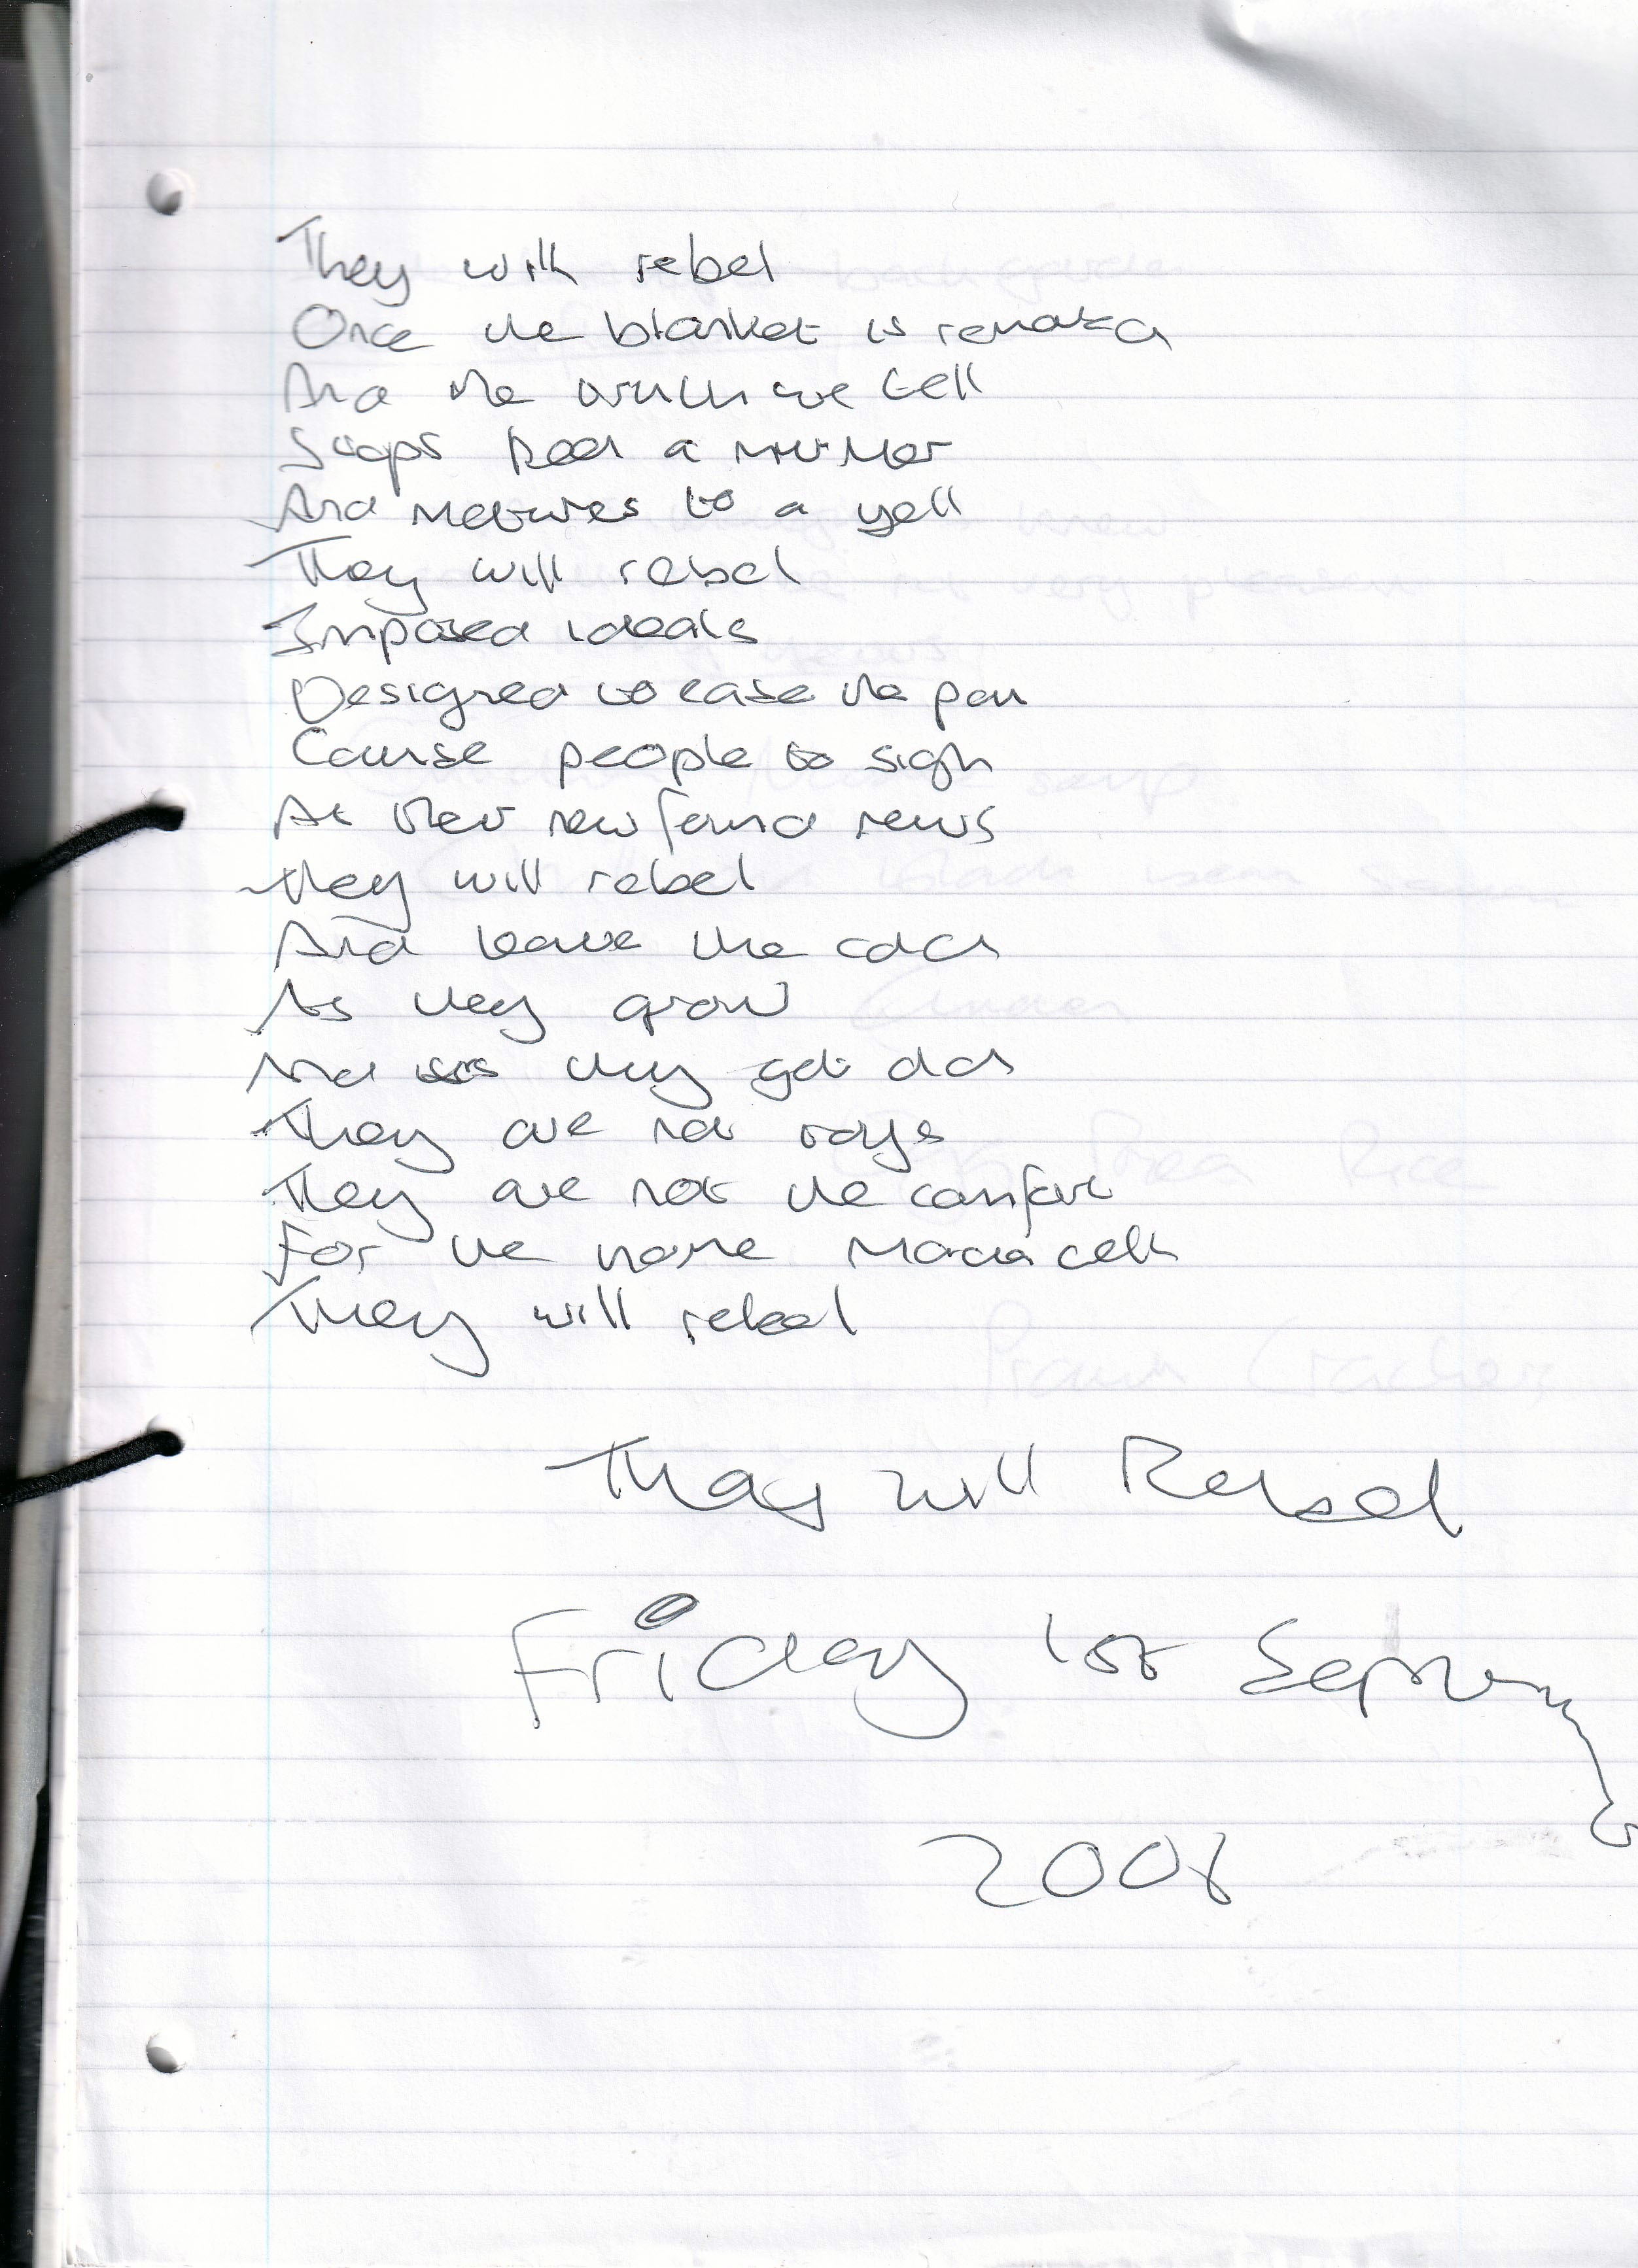 They will rebel
Once the blanket is removed
And the truths we tell
Stops being a mutter
And matures to a yell
They will rebel
Imposed ideals
Designed to ease the pain
Cause people to sigh
At their new found news
They will rebel
And leave the cold
As they grow
And as they get old
They are not toys
They are not the comfort
For the home
They will rebel
They will Rebel
Friday 1st September
2006